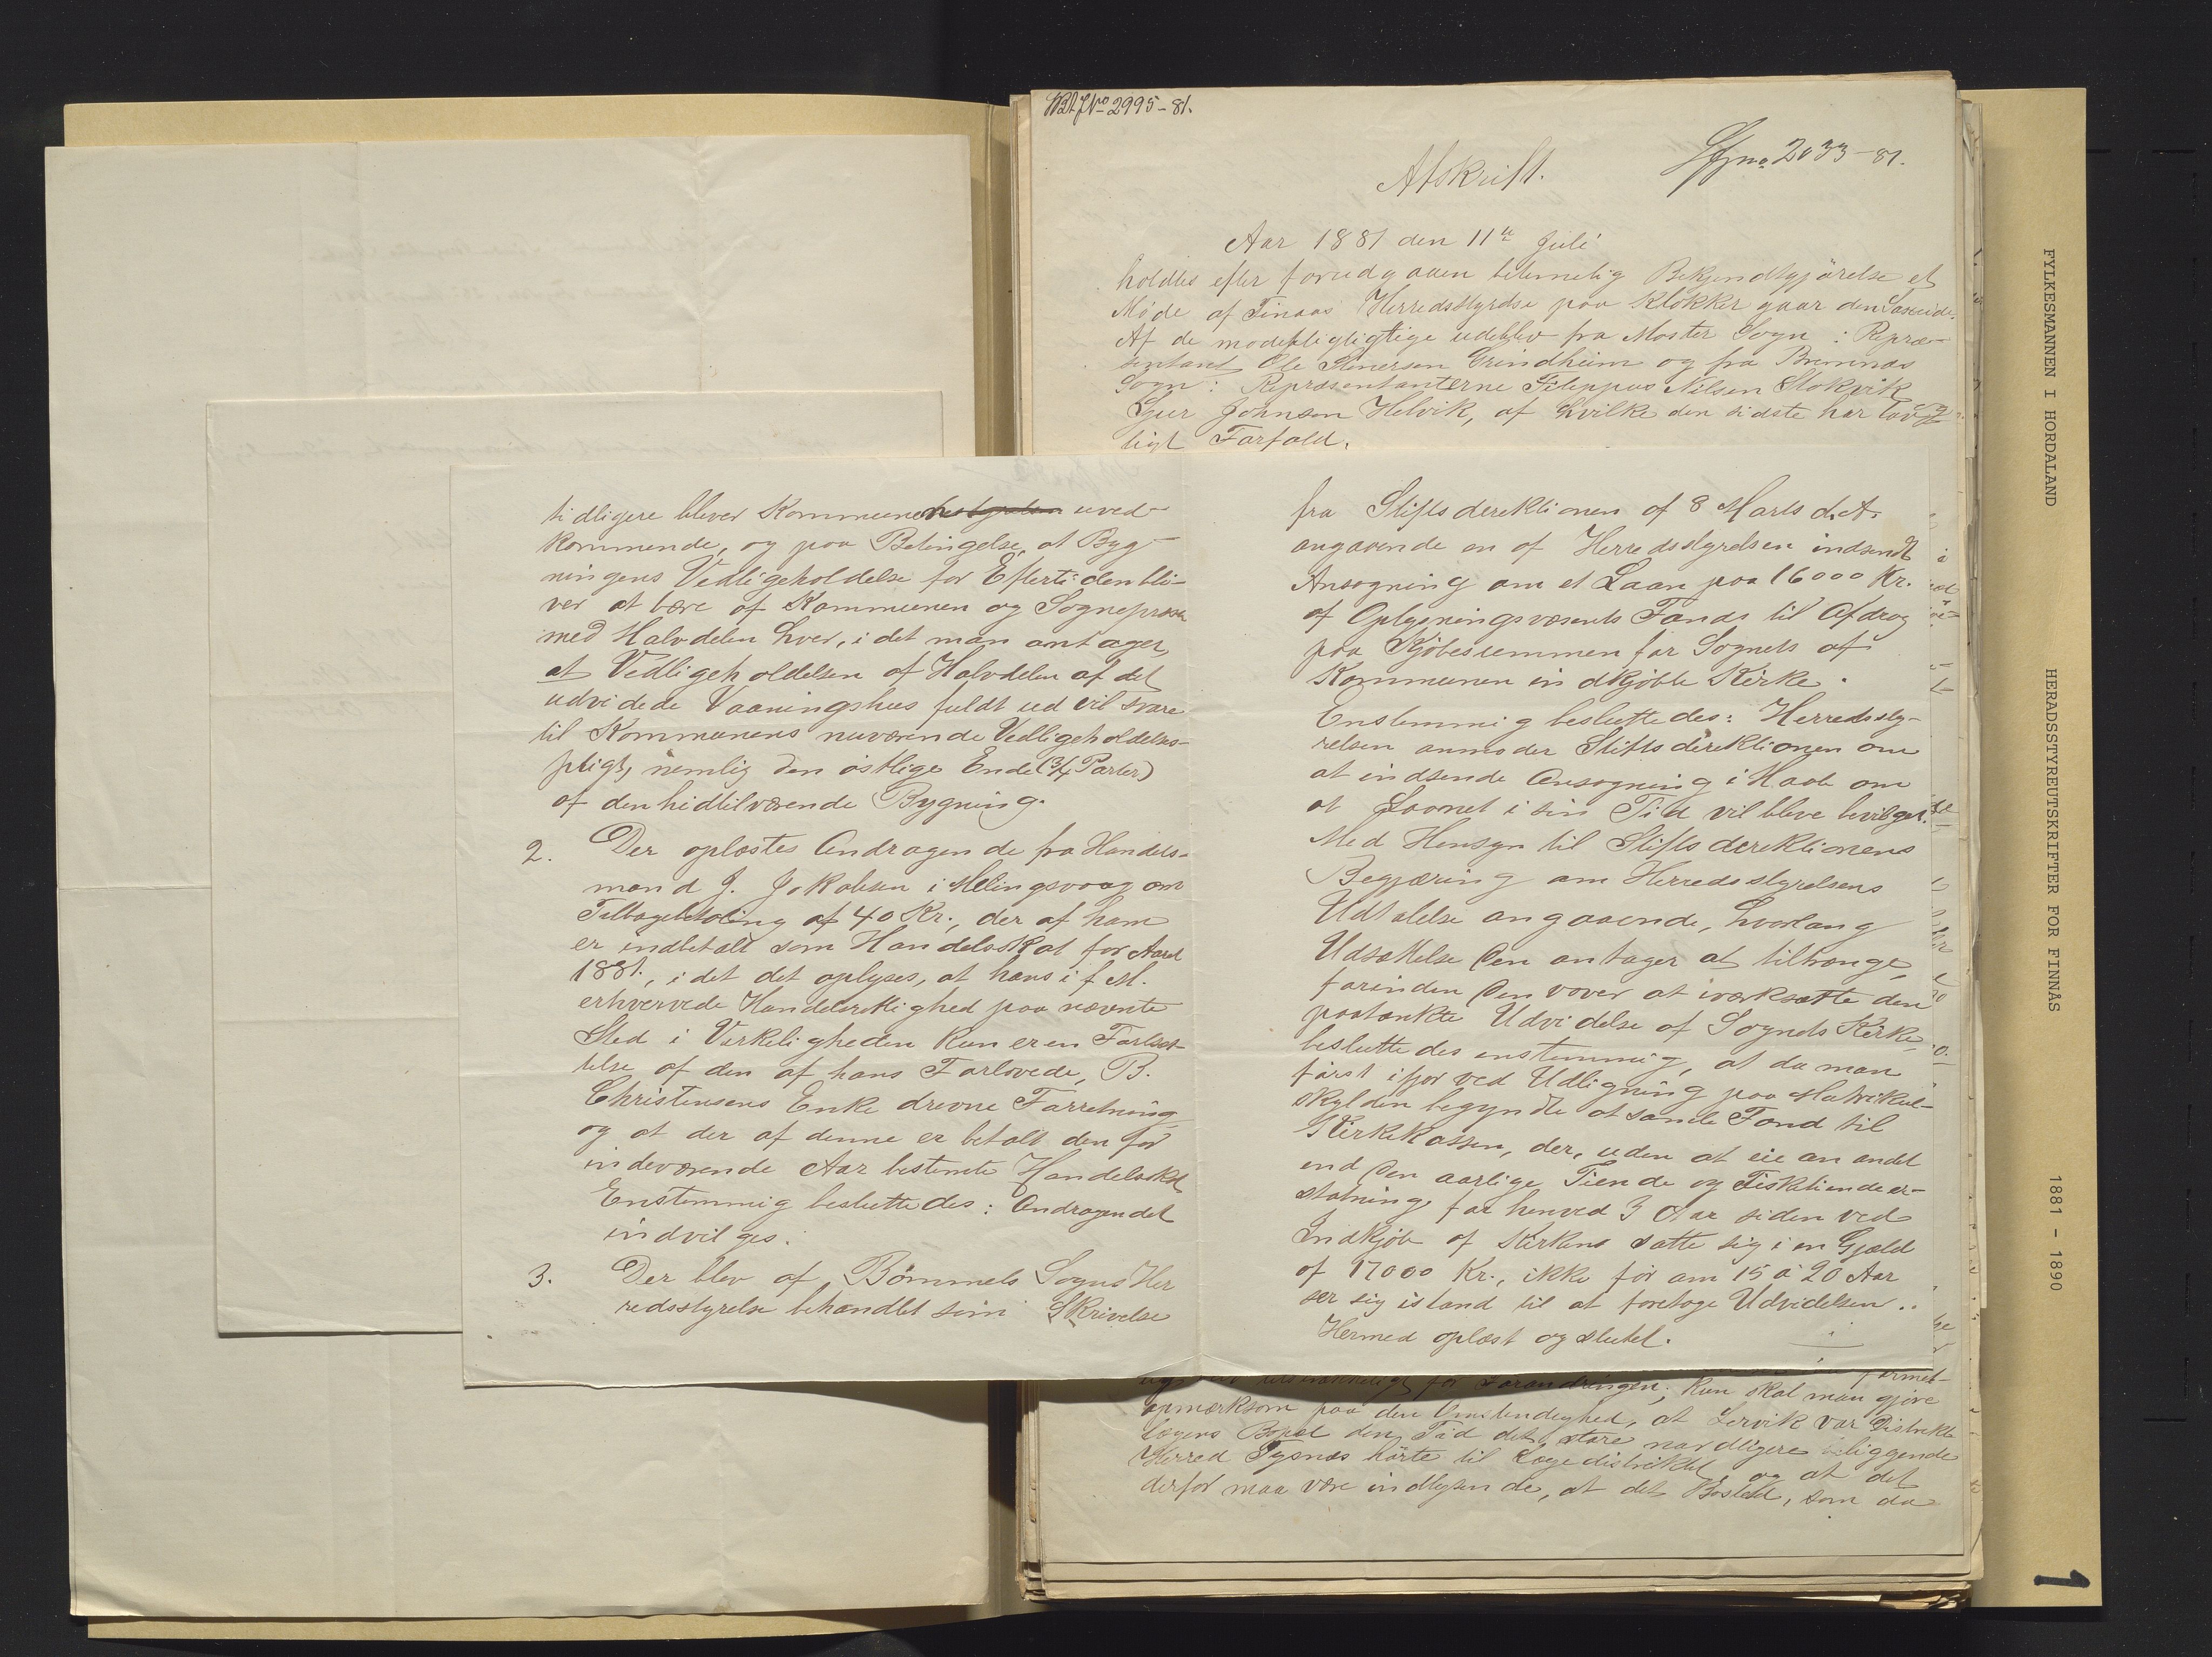 SBtJNo 2995-81.
Sfjno 2033-81.
Afskrift.
Aar 1881 den 11te Juli
holdtes efter forudgaaen betimelig Bekjendtgjörelse et
Möde af Finaas Herredsstyrelse paa Klokkergaarden
Af de mödepligtigtige udeblev fra Moster Sogn: Repræ-
sentant Ole Stenersen Grindheim og fra Bremnæs
Sogn: Repræsentanterne Filippus Nilsen Stokvik
Johnsen Helvik, af hvilke den sidste har lov
ligt Forfald.
tidligere bliver Kommunen uved-
kommende, og paa Betingelse, at Byg-
ningens Vedligeholdelse for Eftertiden bli-
ver at bære af Kommunen og Sognepræsten
med Halvdelen hver, i det man antager,
at Vedligeholdelsen af Halvdelen af det
udvidede Vaaningshus fuldt ud vil svare
til Kommunens nuværende Vedligeholdelses-
pligt, nemlig den östlige Ende (3/4 Parter)
af den hidtilværende Bygning.
2. Der oplæstes Andragende fra Handels-
mand J. Jakobsen i Melingsvaag om
Tilbagebetaling af 40 Kr., der af ham
er indbetalt som Handelsskat for Aaret
1881., i det det oplyses, at hans i f. M.
erhvervede Handelsrettighed paa nævnte
Sted i Virkeligheden kun er en Fortsæt-
telse af den af hans Forlovede, B.
Christensens Enke drevne Forretning
og at der af denne er betalt den for
indeværende Aar bestemte Handelsskat
Enstemmig besluttedes: Andragendet
indvilges.
3. Der blev af Bömmels Sogns Her
redsstyrelse behandlet som Skrivelse
fra Stiftsdirektionen af 8 Marts d.A.
angaaende en af Herredsstyrelsen indsendt
Ansögning om et Laan paa 16000 Kr.
af Oplysningsvæsents Fonds til Afdrag
paa Kjöbesummen for Sognets af
Kommunen indkjöbte Kirke.
Enstemmig besluttedes: Herredssty-
relsen anmoder Stiftsdirektionen om
at indsende Ansögning i Haab om
at Laanet i sin Tid vil bleve bevilget.
Med Hensyn til Stiftsdirektionens
Begjæring om Herredsstyrelsens
Udtalelse angaaende, hvorlang
Udsættelse den antager at tiltrænge,
forinden den vover at iværksætte den
paatænkte Udvidelse af Sognets Kirke,
besluttedes enstemmig, at da man
först ifjor ved Udligning paa Matrikul-
skylden begyndte at samle Fond til
Kirkekassen, der, uden at eie an andet
end den aarlige Tiende og Fisketiendeer-
statning, for henved 3 Aar siden ved
Indkjöb af Kirken satte sig i en Gjæld
af 17000 Kr., ikke för om 15 á 20 Aar
ser sig istand til at foretage Udvidelsen..
Hermed oplæst og sluttet.
for Forandringen; kun skal man gjöre
opmærksom paa den Omstendighed, at Lervik var Distrikts
lægens Bopæl den Tid det store nordligere beliggende
Herred Tysnæs hörte til Lægedistriktet, og at det
derfor maa være indlysende, at det Bosted, som da
FYLKESMANNEN I HORDALAND
HERADSSTYREUTSKRIFTER FOR FINNÅS
1881 - 1890
1